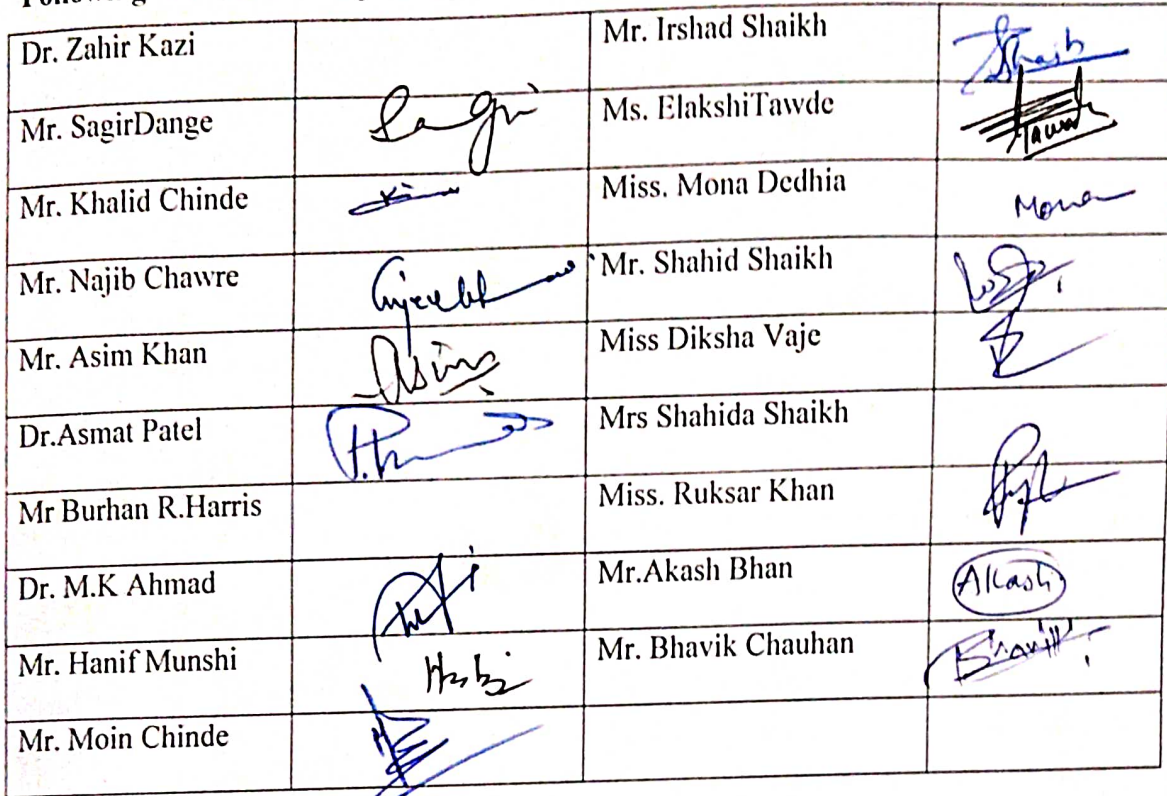 Following
Dr. Zahir Kazi
Mr. Irshad Shaikh
Shaikh
Mr. SagirDange
Sagir
Ms. ElakshiTawde
Tawde
Mr. Khalid Chinde
Miss. Mona Dedhia
Mona
Mr. Najib Chawre
Mr. Shahid Shaikh
Mr. Asim Khan
Asim
Miss Diksha Vaje
Dr.Asmat Patel
Mrs Shahida Shaikh
Mr Burhan R.Harris
Miss. Ruksar Khan
Dr. M.K Ahmad
Mr.Akash Bhan
Akash
Mr. Hanif Munshi
Mr. Bhavik Chauhan
Bhavik
Mr. Moin Chinde